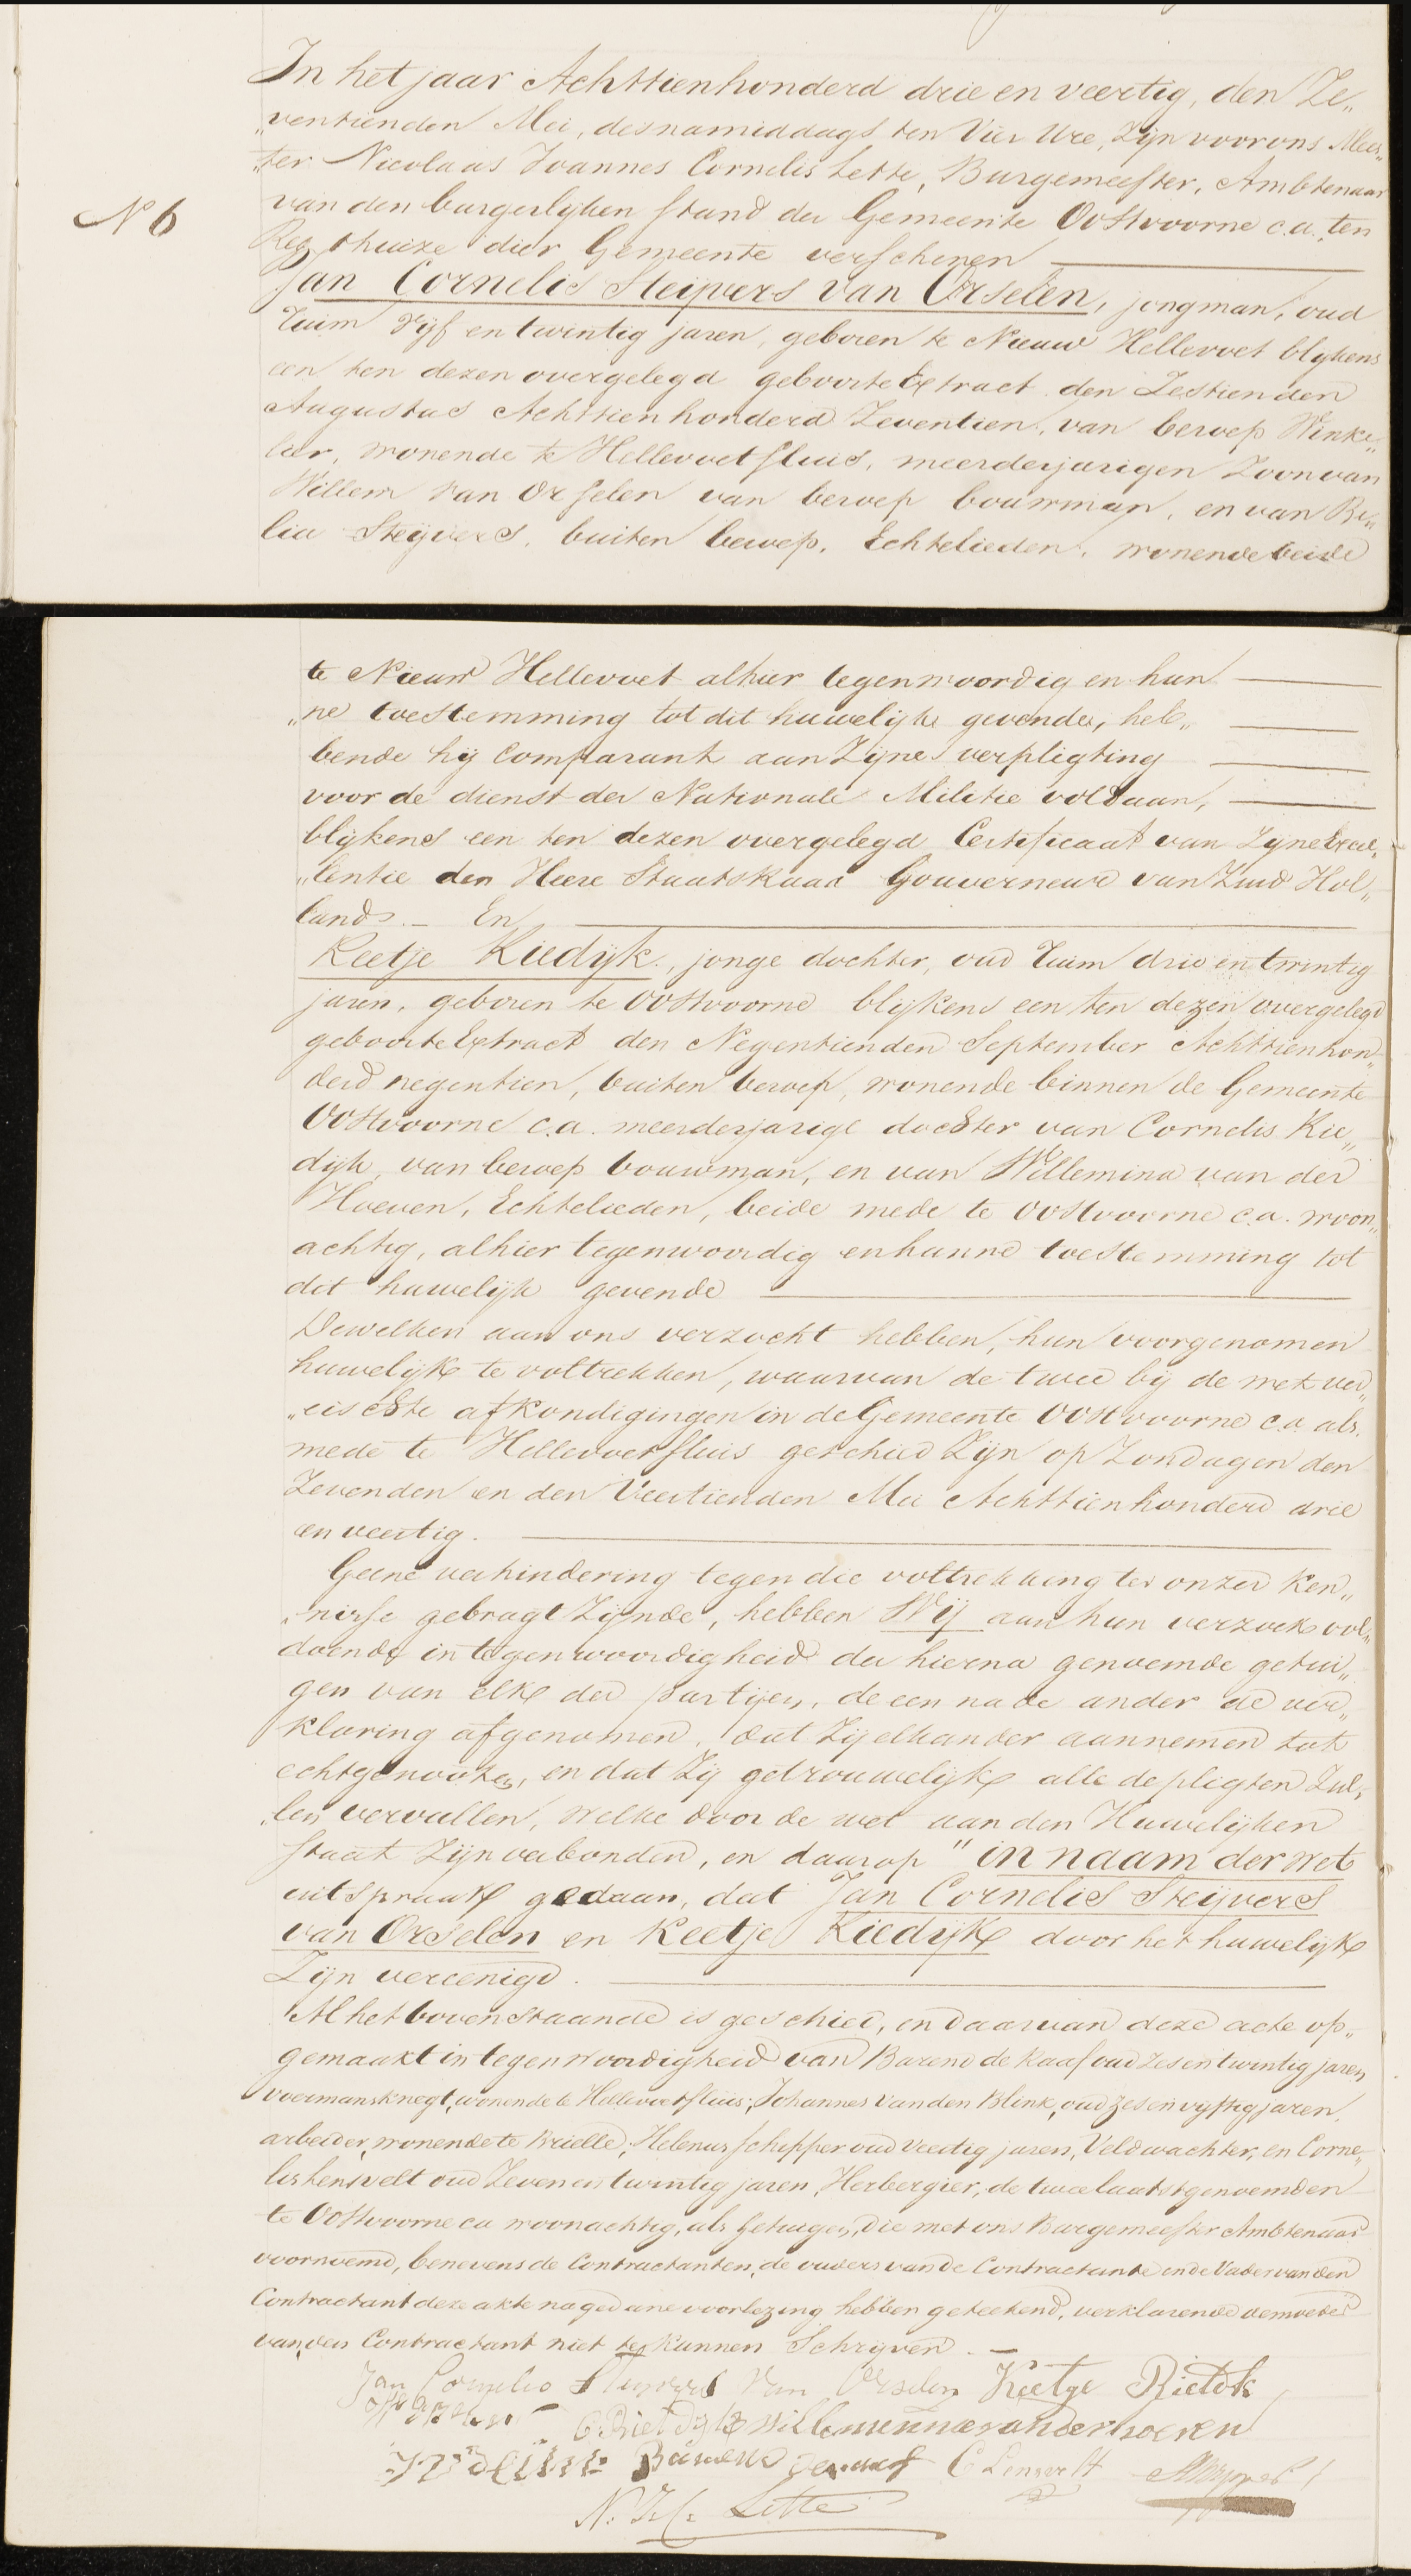 In het jaar Achttienhonderd drie en veertig, den Ze„
„ventienden Mei, desnamiddags ten Vier Ure, zijn voor ons Mees„
„ter Nicolaas Joannes Cornelis Lette, Burgemeester, Ambtenaar
N 6
van den burgerlijken stand der Gemeente Oostvoorne c.a. ten
Regthuize dier Gemeente verschenen
Jan Cornelis Steijvers van Orselen, jongman, oud
ruim vijf en twintig jaren, geboren te Nieuw Hellevoet blijkens
een ten dezen overgelegd geboorte Extract den Zestienden
Augustus Achttienhonderd Zeventien, van beroep Winke„
lier, wonende te Hellevoetsluis, meerderjarigen Zoon van
Willem van Orselen van beroep bouwman, en van
lia Steijvers, buiten beroep, Echtelieden, wonende beide
te Nieuw Hellevoet alhier tegenwoordig en hun
„ne toestemming tot dit huwelijk gevende, heb„
bende hij Comparant aan Zijne verpligting
voor de dienst der Nationale Militie voldaan,
blijkens een ten dezen overgelegd Certificaat van Zijne Excel„
„lentie den Heere Staatsraad Gouverneur van Zuid Hol„
land. – En
Keetje Riedijk, jonge dochter, oud ruim drie en twintig
jaren, geboren te Oostvoorne blijkens een ten dezen overgelegd
geboorte Extract den Negentienden September Achttienhon„
derd negentien, buiten beroep, wonende binnen de Gemeente
Oostvoorne c.a. meerderjarige dochter van Cornelis Rie„
dijk, van beroep bouwman, en van Willemina van der
Hoeven, Echtelieden, beide mede te Oostvoorne c.a. woon„
achtig, alhier tegenwoordig en hunne toestemming tot
dit huwelijk gevende
Dewelken aan ons verzocht hebben, hun voorgenomen
huwelijk te voltrekken, waarvan de twee bij de wet ver„
„eischte afkondigingen in de Gemeente Oostvoorne c.a. als
mede te Hellevoetsluis geschied Zijn op Zondagen den
Zevenden en den Veertienden Mei Achttienhonderd drie
en veertig.
Geene verhindering tegen die voltrekking ter onzer ken„
„nisse gebragt Zijnde, hebben Wij aan hun verzoek vol„
doende in tegenwoordigheid der hierna genoemde getui„
gen van elke der partijen, de een na de ander de ver„
klaring afgenomen, dat Zij elkander aannemen tot
echtgenooten, en dat Zij getrouwelijk alle de pligten Zul„
„len vervullen, welke door de wet aan den Huwelijken
staat Zijn verbonden, en daarop "in naam der wet
uitspraak gedaan, dat Jan Cornelis Steijvers
van Orselen en Keetje Riedijk door het huwelijk
Zijn vereenigd.
Al het bovenstaande is geschied, en daarvan deze acte op„
gemaakt in tegenwoordigheid van Barend de Raaf oud zes en twintig jaren
voermansknegt, wonende te Hellevoetsluis; Johannes van den Blink, oud zes en vijftig jaren,
arbeider, wonende te Brielle; Helenus Schipper oud Veertig jaren, Veldwachter, en Corne„
lis Lensvelt oud Zeven en twintig jaren, Herbergier, de twee laatstgenoemden
te Oostvoorne ca woonachtig, als getuigen, die met ons Burgemeester Ambtenaar
voornoemd, benevens de Contractanten, de ouders van de Contractante en de Vader van den
Contractant deze akte na gedane voorlezing hebben geteekend, verklarende de moeder
van den Contractant niet te kunnen Schrijven. –
Jan Cornelis Steijvers van Orselen Keetje Rietdik
C Rietdijk Willeminna van der hoeven
Barend de Raaf C Lensvelt
N. J. C. Lette